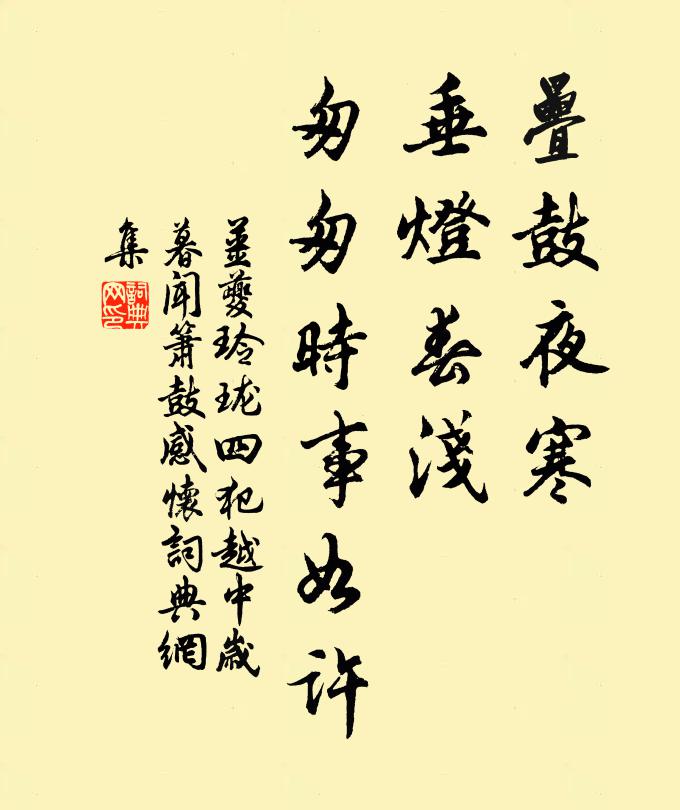 疊鼓夜寒
垂燈春淺
匆匆時事如許
姜夔玲瓏四犯越中歲
暮聞簫鼓感懷詞典網
集
詞典
网印